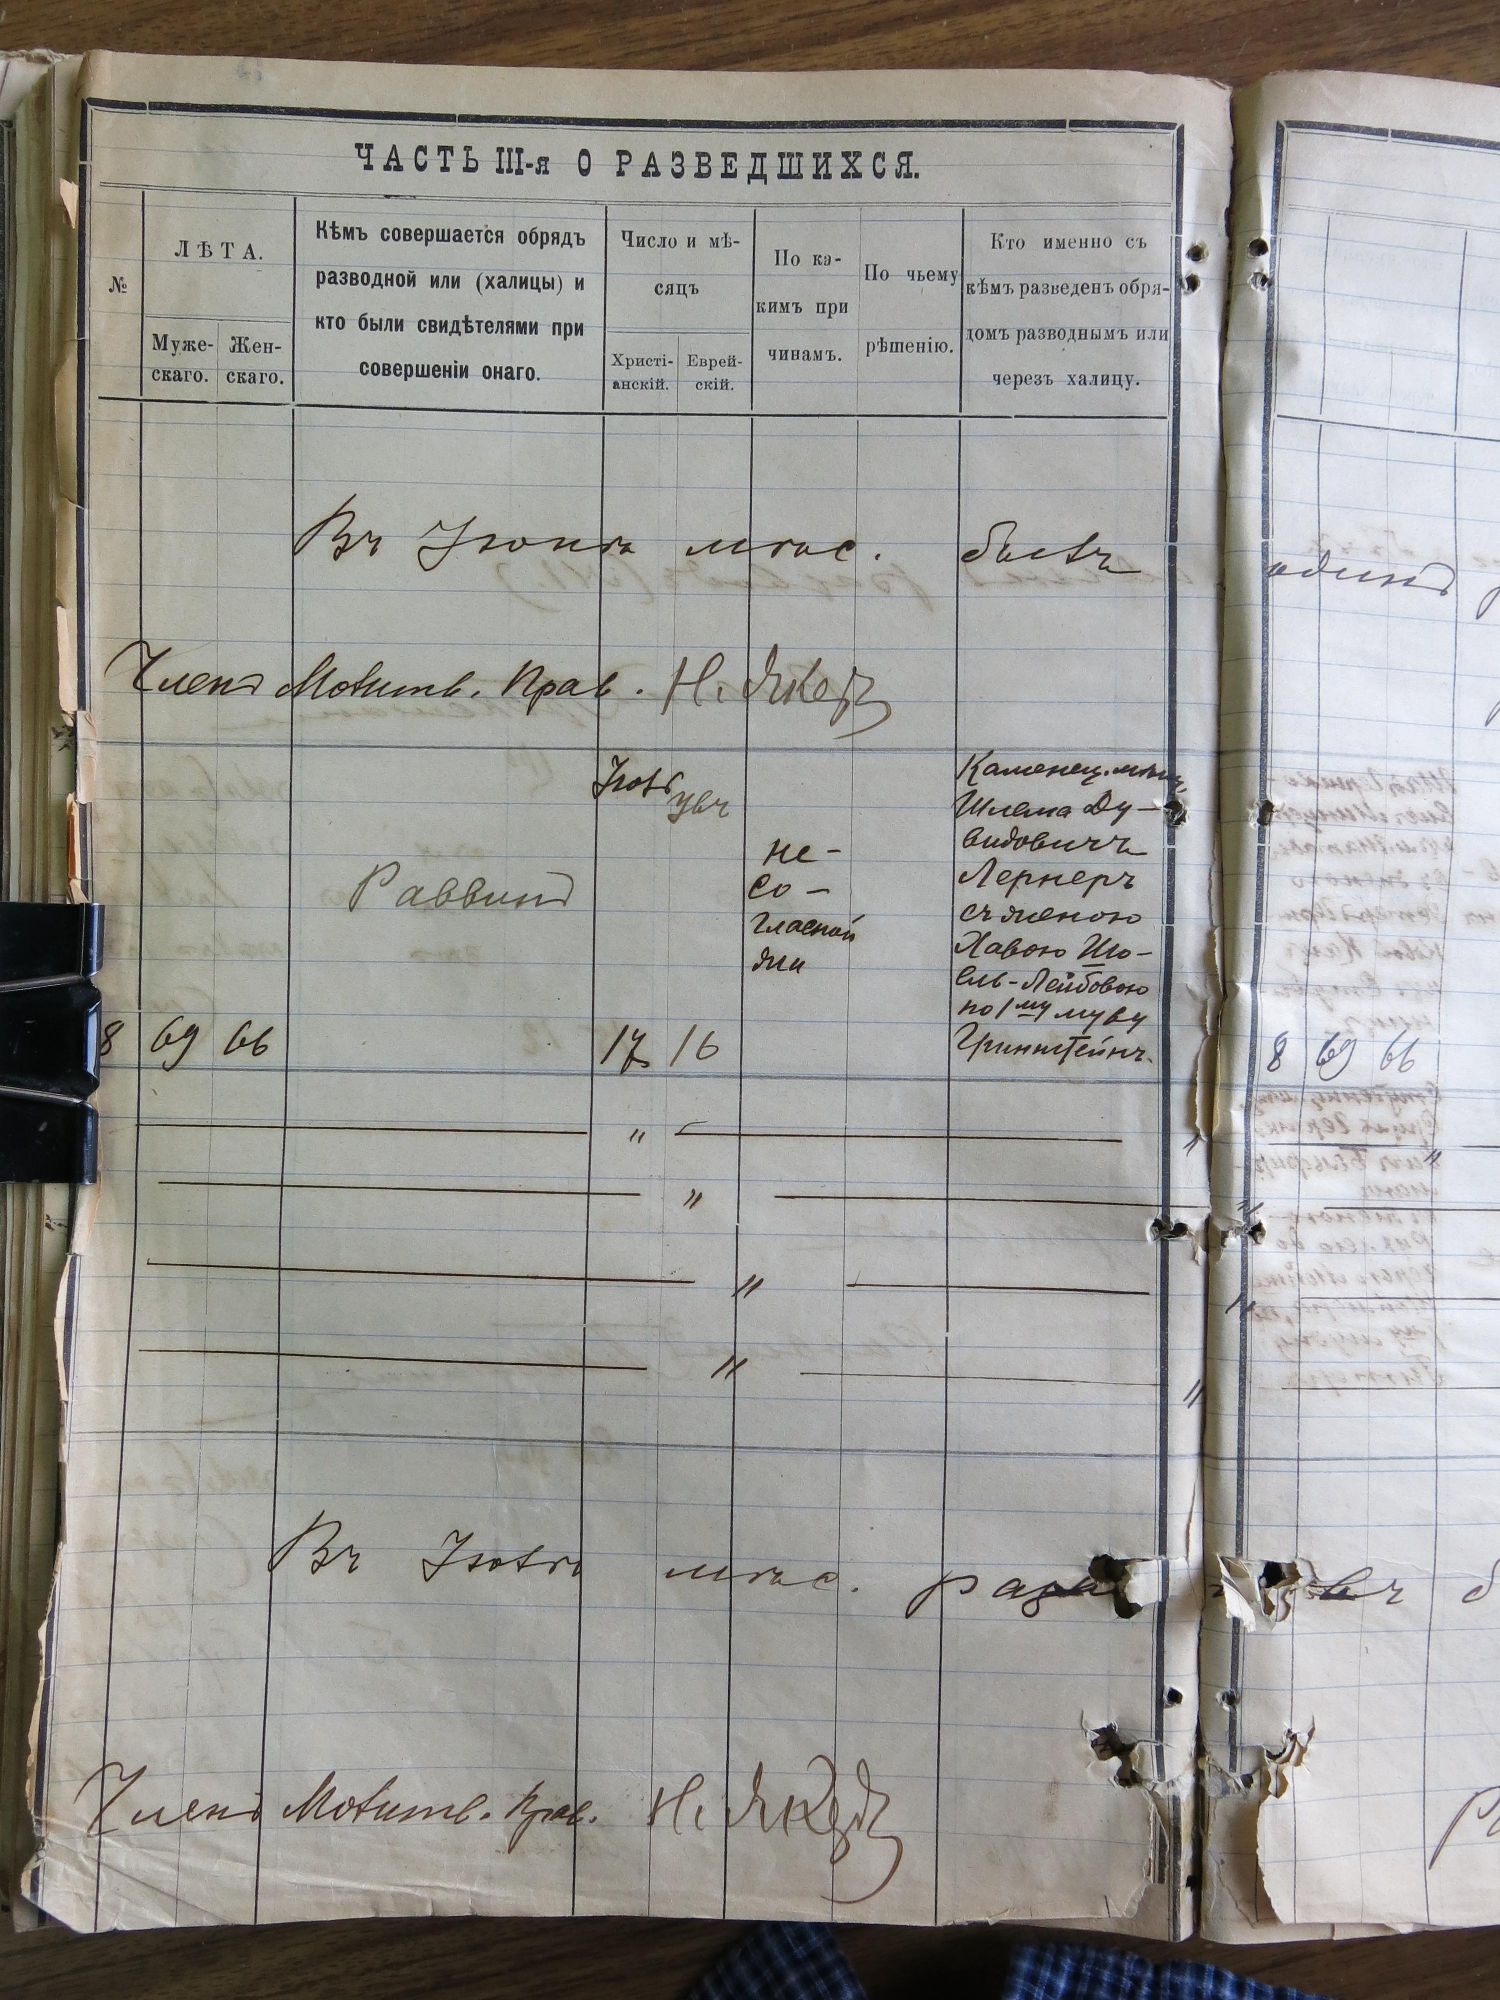 ЧАСТЬ III-я О РАЗВЕДШИХСЯ.
№
ЛѢТА.
Муже-
скаго.
Жен-
скаго.
Кѣмъ совершается обрядъ
разводной или (халицы) и
кто были свидѣтелями при
совершеніи онаго.
Число и мѣ-
сяцъ
Христі-
анскій.
Еврей-
скій.
По ка-
кимъ при
чинамъ.
По чьему
рѣшенію.
Кто именно съ
кѣмъ разведенъ обря-
домъ разводнымъ или
черезъ халицу.
Въ Іюнѣ мѣс. былъ одинъ
Членъ Молитв. Прав. Н. Якеръ
8
69
66
Раввинъ
Іюль
17
16
не-
со-
гласной
Каменец. мѣщ.
Шлема Ду-
видовичъ
Лернеръ
съ женою
Хавою Шо-
ель-Лейбовою
по 1му мужу
Гринштейнъ.
8 69 66
Въ Іюлѣ мѣс.
Членъ Молитв. Прав. Н. Якеръ